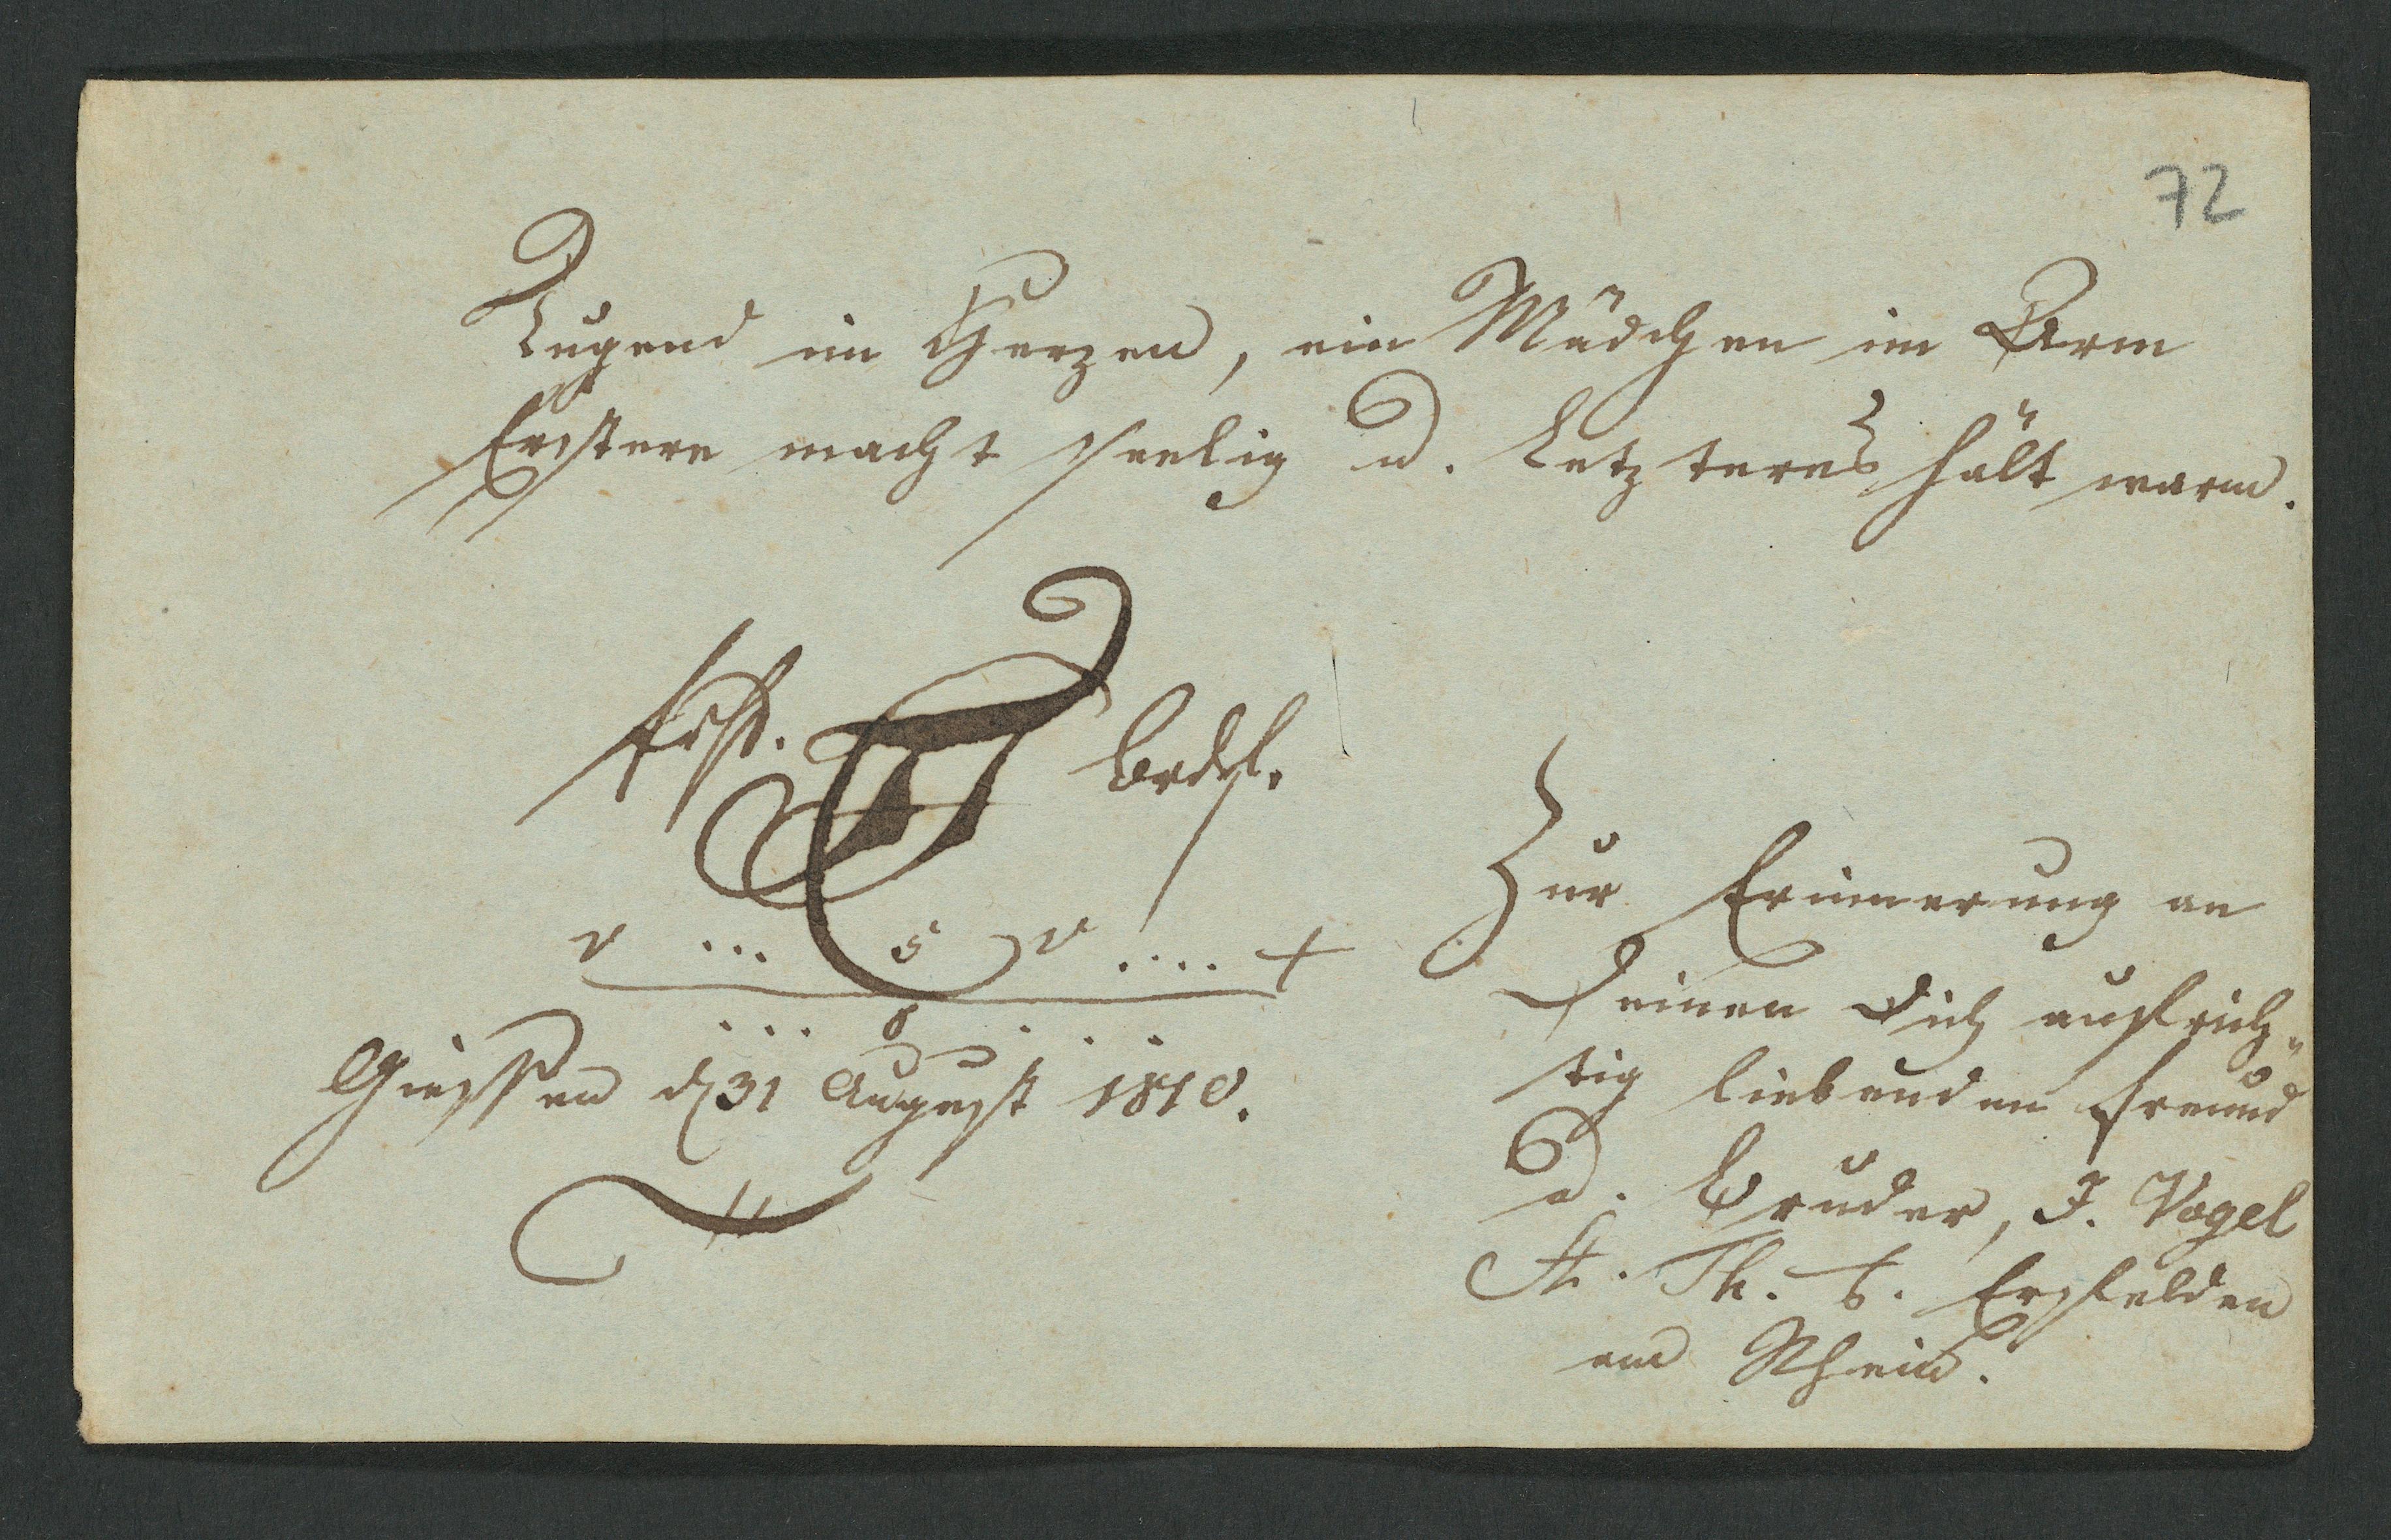 72
Tugend im Herzen, ein Mädchen im Arm
Erstere macht seelig u. Letzteres hält warm.
v ... 5 v .... +
Giessen d 31 August 1810.
Zur Erinnerung an
Deinen Dich aufrich„
tig liebenden Freund
u. Bruder, J. Vogel
St. Th. b. Erfelden
am Rhein.